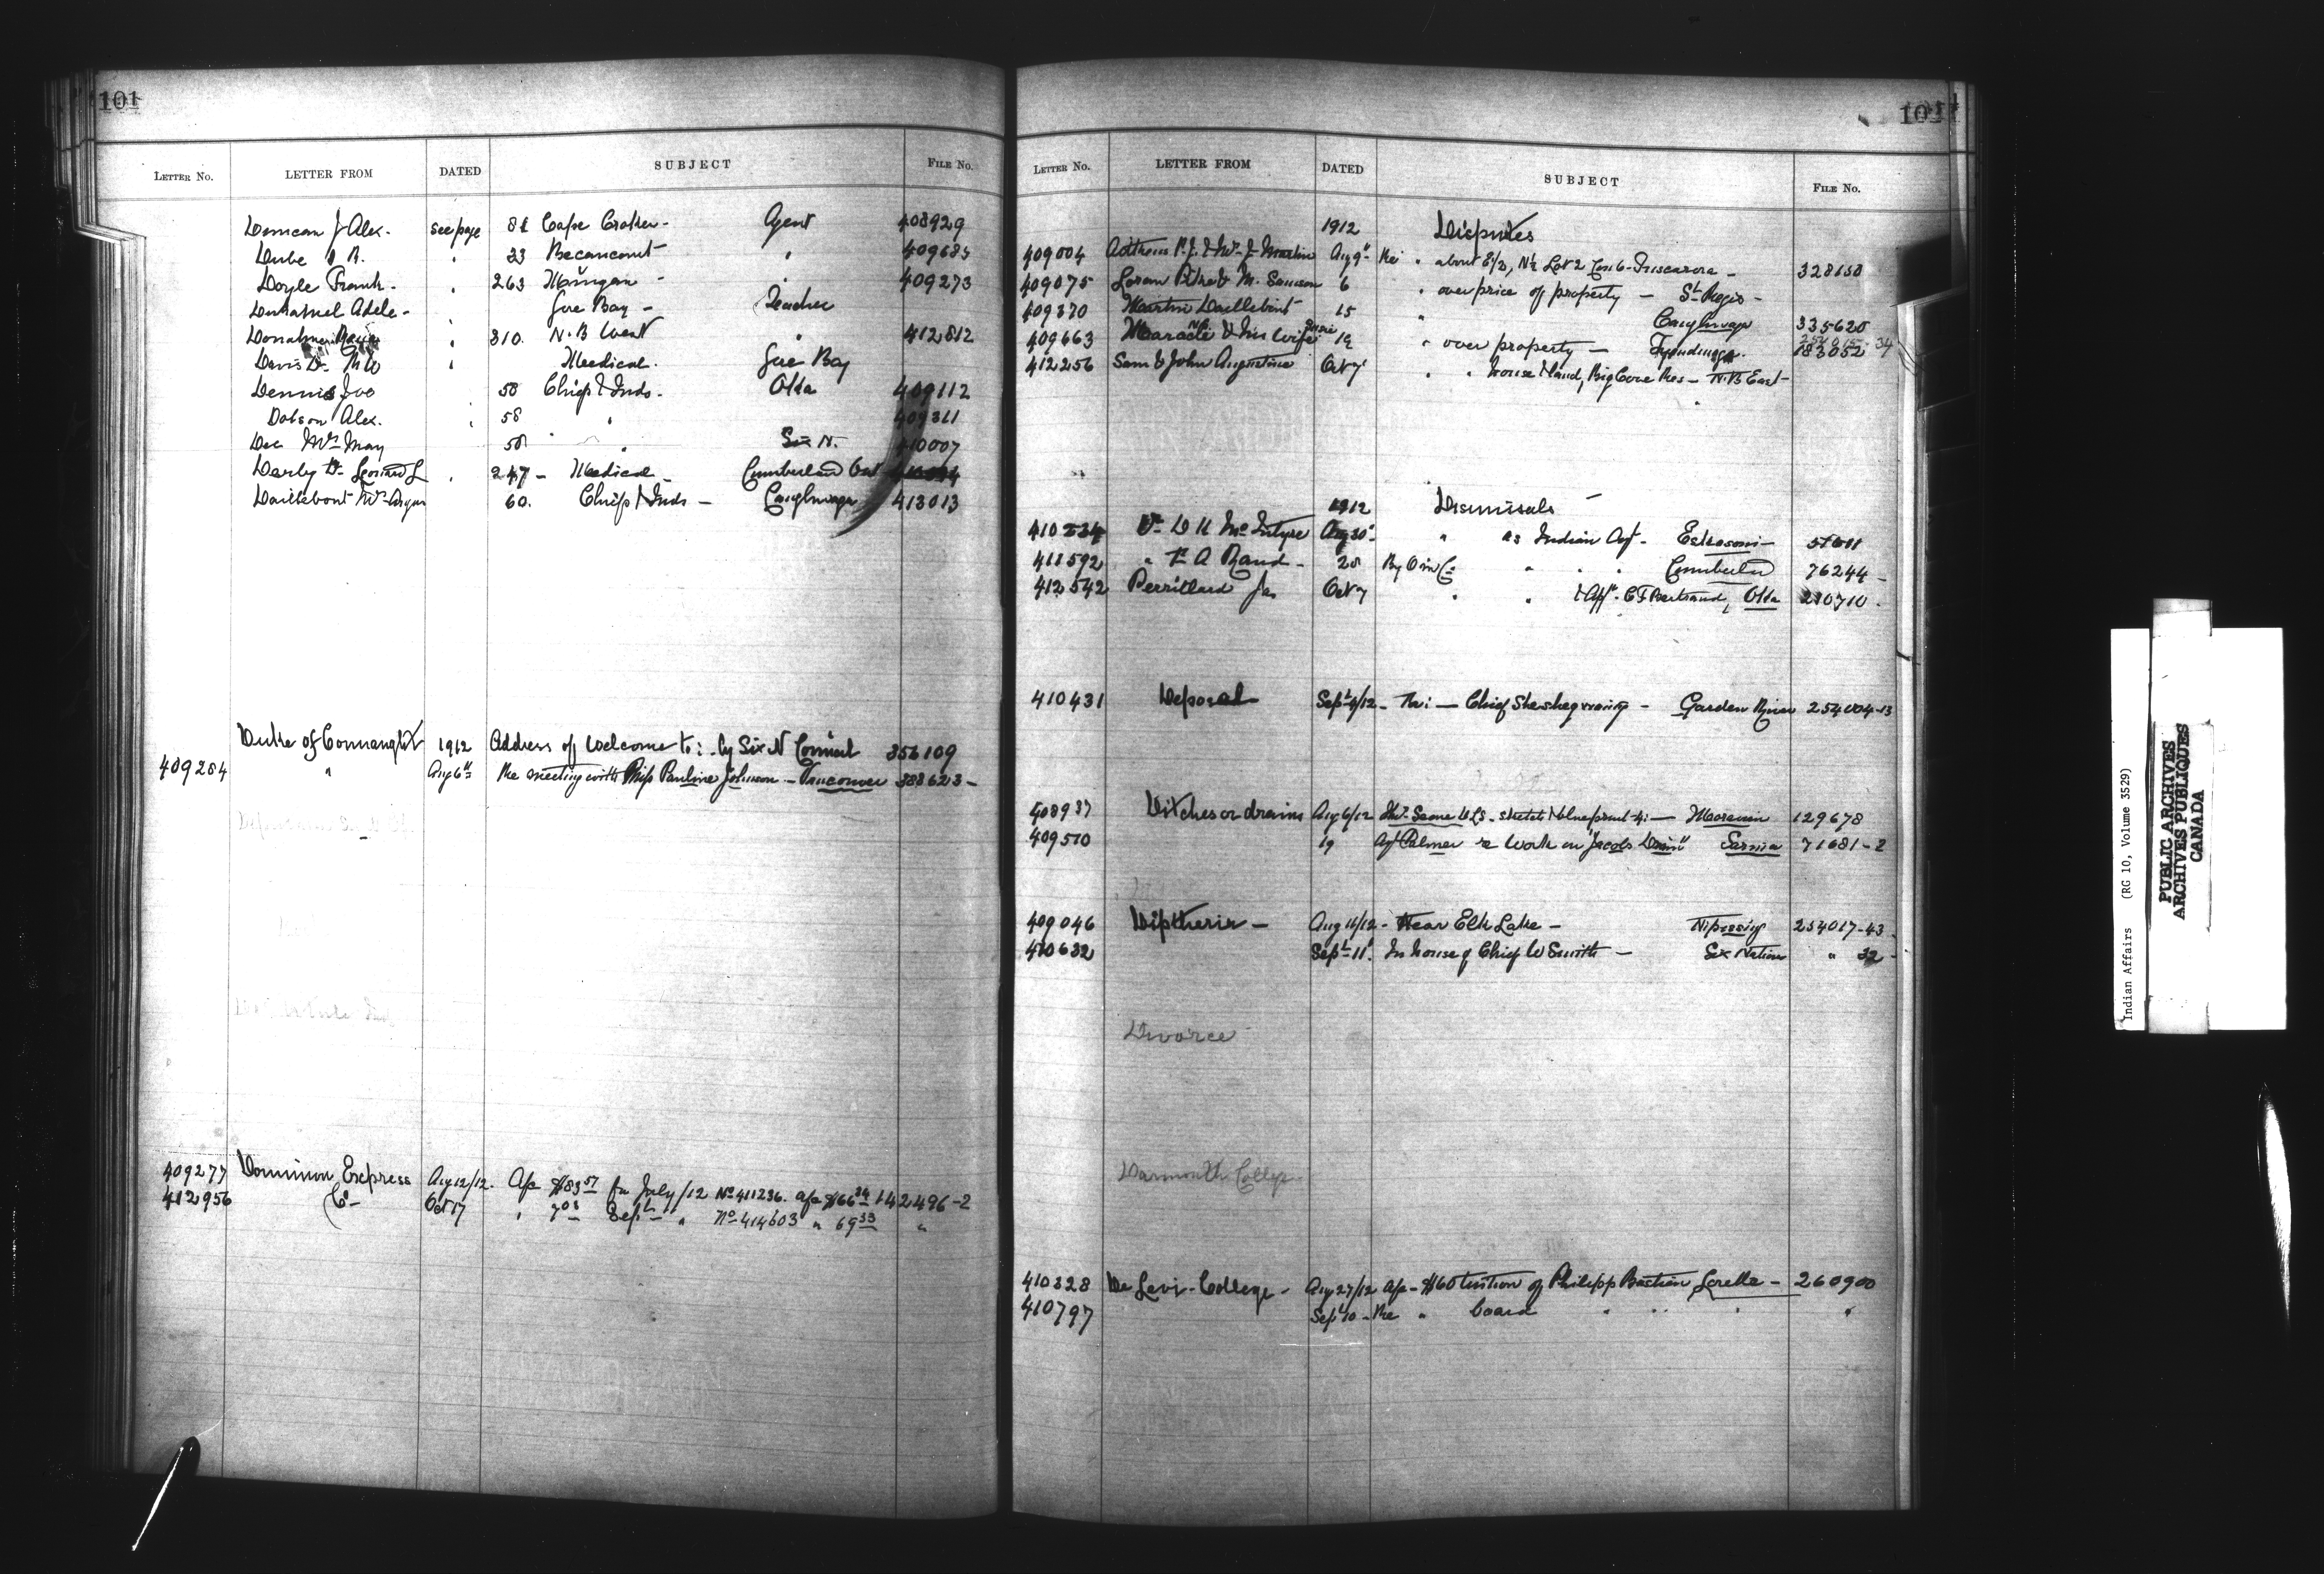 101
LETTER No. LETTER FROM DATED SUBJECT FILE No.
Duncan J Alex. see page 81 Cape Croker - Agent 408929
Dube R. " 33 Becancourt " 409685
Doyle Frank - " 263 Mingan - " 409273
Adele - Gore Bay - Teacher
" 310. N.B West 412812
Davis Dr " Medical. Gore Bay
Dennis Joe 58 Chief & Inds. Otta 409112
Dobson Alex. " 58 " 409311
Dec Mrs May 58 " " Six N. 410007
Darby Dr. Leonard L . 247 - Medical - Cumberland
Daillebout Mrs 60. Chief & Inds - Caughnawaga 413013
Duke of Connaught 1912 Address of Welcome to: - by Six N Council 356109
409284 " Aug 6" Re meeting with Miss Pauline Johnson - Vancouver 388623 -
409277 Dominion Express Aug 12/12. A/c $83 57 for July/12 No 411236. a/c $66 24 142496-2
412956 Co - Oct 17 " 7 08 Sept " No 414603 " 69 33 "
101
LETTER No. LETTER FROM DATED SUBJECT FILE No.
1912 Disputes
409004 & Mrs J. Martin Aug 9" Re " about E/2, N½ Lot 2 Con 6 - Tuscarora - 328158
409075 Loran Peter & M. Samson 6 " over price of property - St Regis -
409370 Martin Daillebout 15 " Caughnawaga 335620
409663 Maracle & his wife 19 " over property - Tyendinaga. 183052 34
412256 Sam & John Augustine Oct 7 " " house & land, Big Cove Res - N.B East -
1912 Dismissals
410234 Dr D K McIntyre Aug 30" " as Indian Agt - Eskasoni - 51611
411592 " F A Rand - 28 By O in C " " " Cumberland 76244 -
412542 Perrillard Jas Oct 7 " " & Appt. C F Bertrand, Otta 210710.
410431 Deposal Sept 4/12 - Re: - Chief Sheshegwaning - Garden River 254004-13
408937 Ditches or drains Aug 6/12 D.L.S. sketch & blue print of: - Moravian 129678
409510 19 Agt Palmer re Work on "Jacobs Drain" Sarnia 71681-2
409046 Diptheria - Aug 11/12 - Near Elk Lake - Nipissing 254017-43.
410632 Sept 11". In house of Chief W Smith - Six Nation " 32 -
Divorce
Darmouth College
410328 De Levi - College - Aug 27/12 A/c - $60 tuition of Philipp Bastien Lorette - 260900
410797 Sept 10 - Re " board " " " "
Indian Affairs (RG 10, Volume 3529)
PUBLIC ARCHIVES
ARCHIVES PUBLIQUES
CANADA